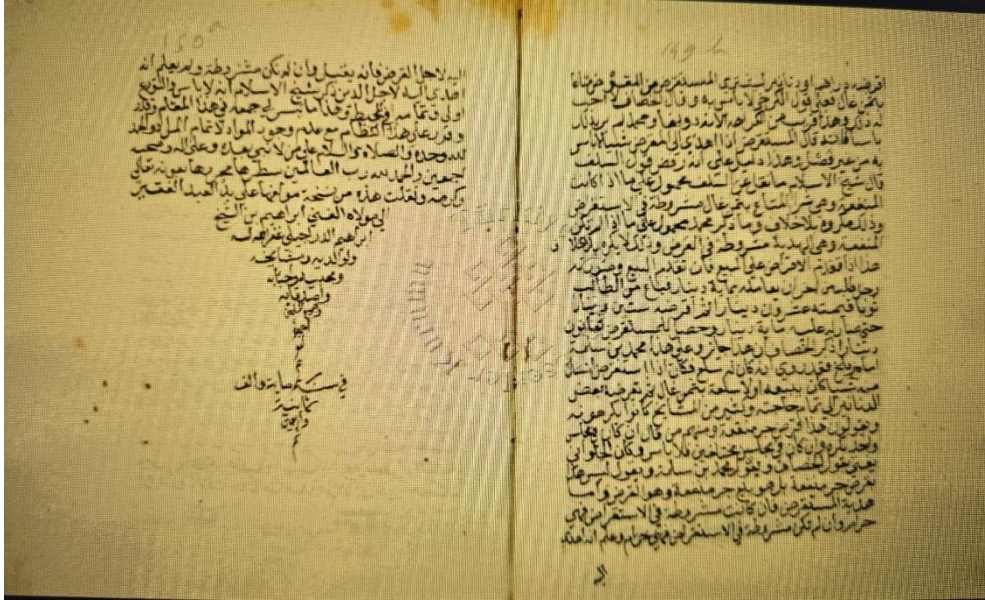 149 b
اقرضه دراهم او دنانير ليشتري المستقرض من المقرض متاعا
بثمن غال فعلى قول الكرخي لا باس به وقال الخصاف ما احب
له ذلك وهذا قريب من الكراهة
باسا فانه قال المستقرض اذا اهدى الى المقرض شيئا لا باس
به من غير فصل وهذا دليل على انه رفض قول السلف
قال شيخ الاسلام ما نقل عن السلف محمول على ما اذا كانت
المنفعة وهي شراء المتاع بثمن غال مشروطة في الاستقراض
وذلك مكروه بلا خلاف وما ذكر محمد محمول على ما
المنفعة وهي الهدية مشروطة في القرض وذلك لا يكره بلا خلاف
هذا اذا تقدم الاقراض على البيع فان تقدم البيع وصورته
رجل طلب من اخر ان يعامله بماية دينار فباع من الطالب
ثوبا قيمته عشرون دينارا ثم اقرضه ستين دينار
حتى صار له عليه ماية دينار وحصل للمستقرض ثمانون
دينارا ذكر الخصاف ان هذا جائز وعلى هذا محمد بن سلمة
امام بلخ فقد روي انه كان له سلع فكان اذا استقرض انسان
منه شيا كان يبيعه اولا سلعة بثمن غال ثم يقرضه بعض
الدنانير الى تمام حاجته وكثير من المشايخ كانوا يكرهونه
ويقولون هذا قرض جر منفعة ومنهم من قال ان كان في مجلس
واحد يكره وان كان في مجلسين مختلفين فلا باس وكان الحلواني
يفتي بقول الخصاف وبقول محمد بن سلمة ويقول ليس هذا
بقرض جر منفعة بل هو بيع جر منفعة وهو القرض واما
هدية المستقرض فان كانت مشروطة في الاستقراض فهي
حرام وان لم تكن مشروطة في الاستقراض فهي حرام وعلم انه اهداه
اليه
150 a
اليه لاجل القرض فانه يقبل وان لم تكن مشروطة ولم يعلم انه
اهدى اليه لاجل الدين ذكر شيخ الاسلام انه لا باس والتورع
اولى وتمامه في المحيط وهذا ما يسر لي جمعه في هذا المقام وقدر
وفور على هذا النظام مع عدم وجود المواد لاتمام المراد والحمد
لله وحده والصلاة والسلام على من لا نبي بعده وعلى اله وصحبه
اجمعين والحمد لله رب العالمين سطرها محررها بعونه تعالى
وكرمه ونقلت هذه من نسخة مؤلفها على يد العبد الفقير
الى مولاه الغني ابراهيم بن الشيخ
ابراهيم غفر الله له
ولوالديه ومشايخه
ومحبيه واحبابه
واصدقائه
في سنة ماية والف